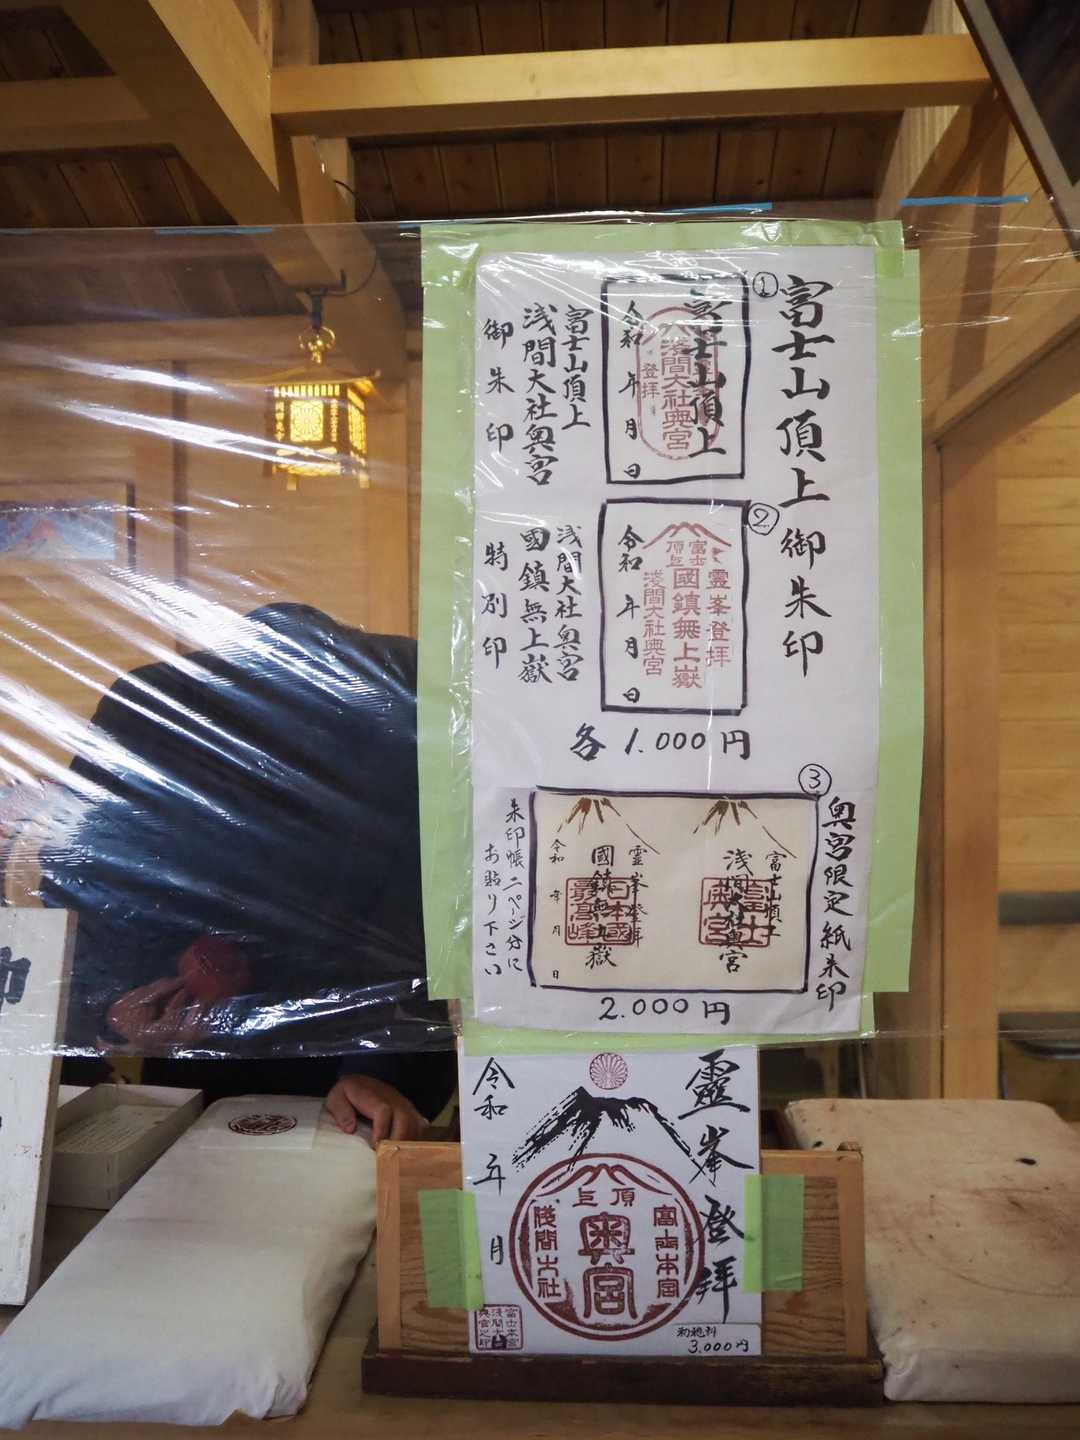 富士山頂上御朱印
①
富士山頂上
浅間大社奥宮
登拝
令和 年 月 日
富士山頂上
浅間大社奥宮
御朱印
②
霊峯登拝
富士
頂上
國鎮無上嶽
浅間大社奥宮
令和 年 月 日
浅間大社奥宮
國鎮無上嶽
特別印
各1.000円
③
奥宮限定紙朱印
富士山頂上
浅間大社奥宮
霊峯登拝
國鎮無上嶽
日本國
最高峰
令和 年 月 日
朱印帳二ページ分に
お貼り下さい
2.000円
靈峯登拝
頂上
富士本宮
奥宮
浅間大社
令和 年 月
初穂料
3.000円